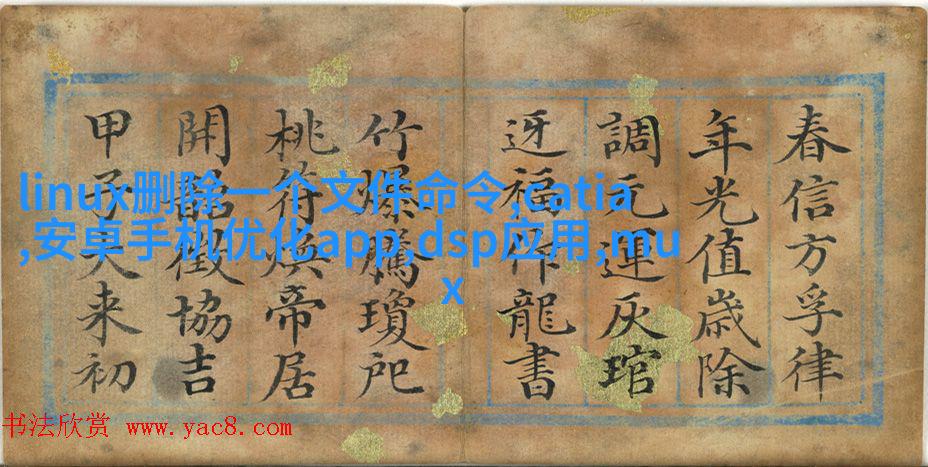 春信方孚律
年光值歲除
調元運灰琯
迓福作龍書
竹爆騰瓊戺
桃符煥帝居
開韶徵協吉
甲子来初
linux删除一个文件命令,catia
,安卓手机优化app,dsp应用,mu
x
书法欣赏 www.yac8.com